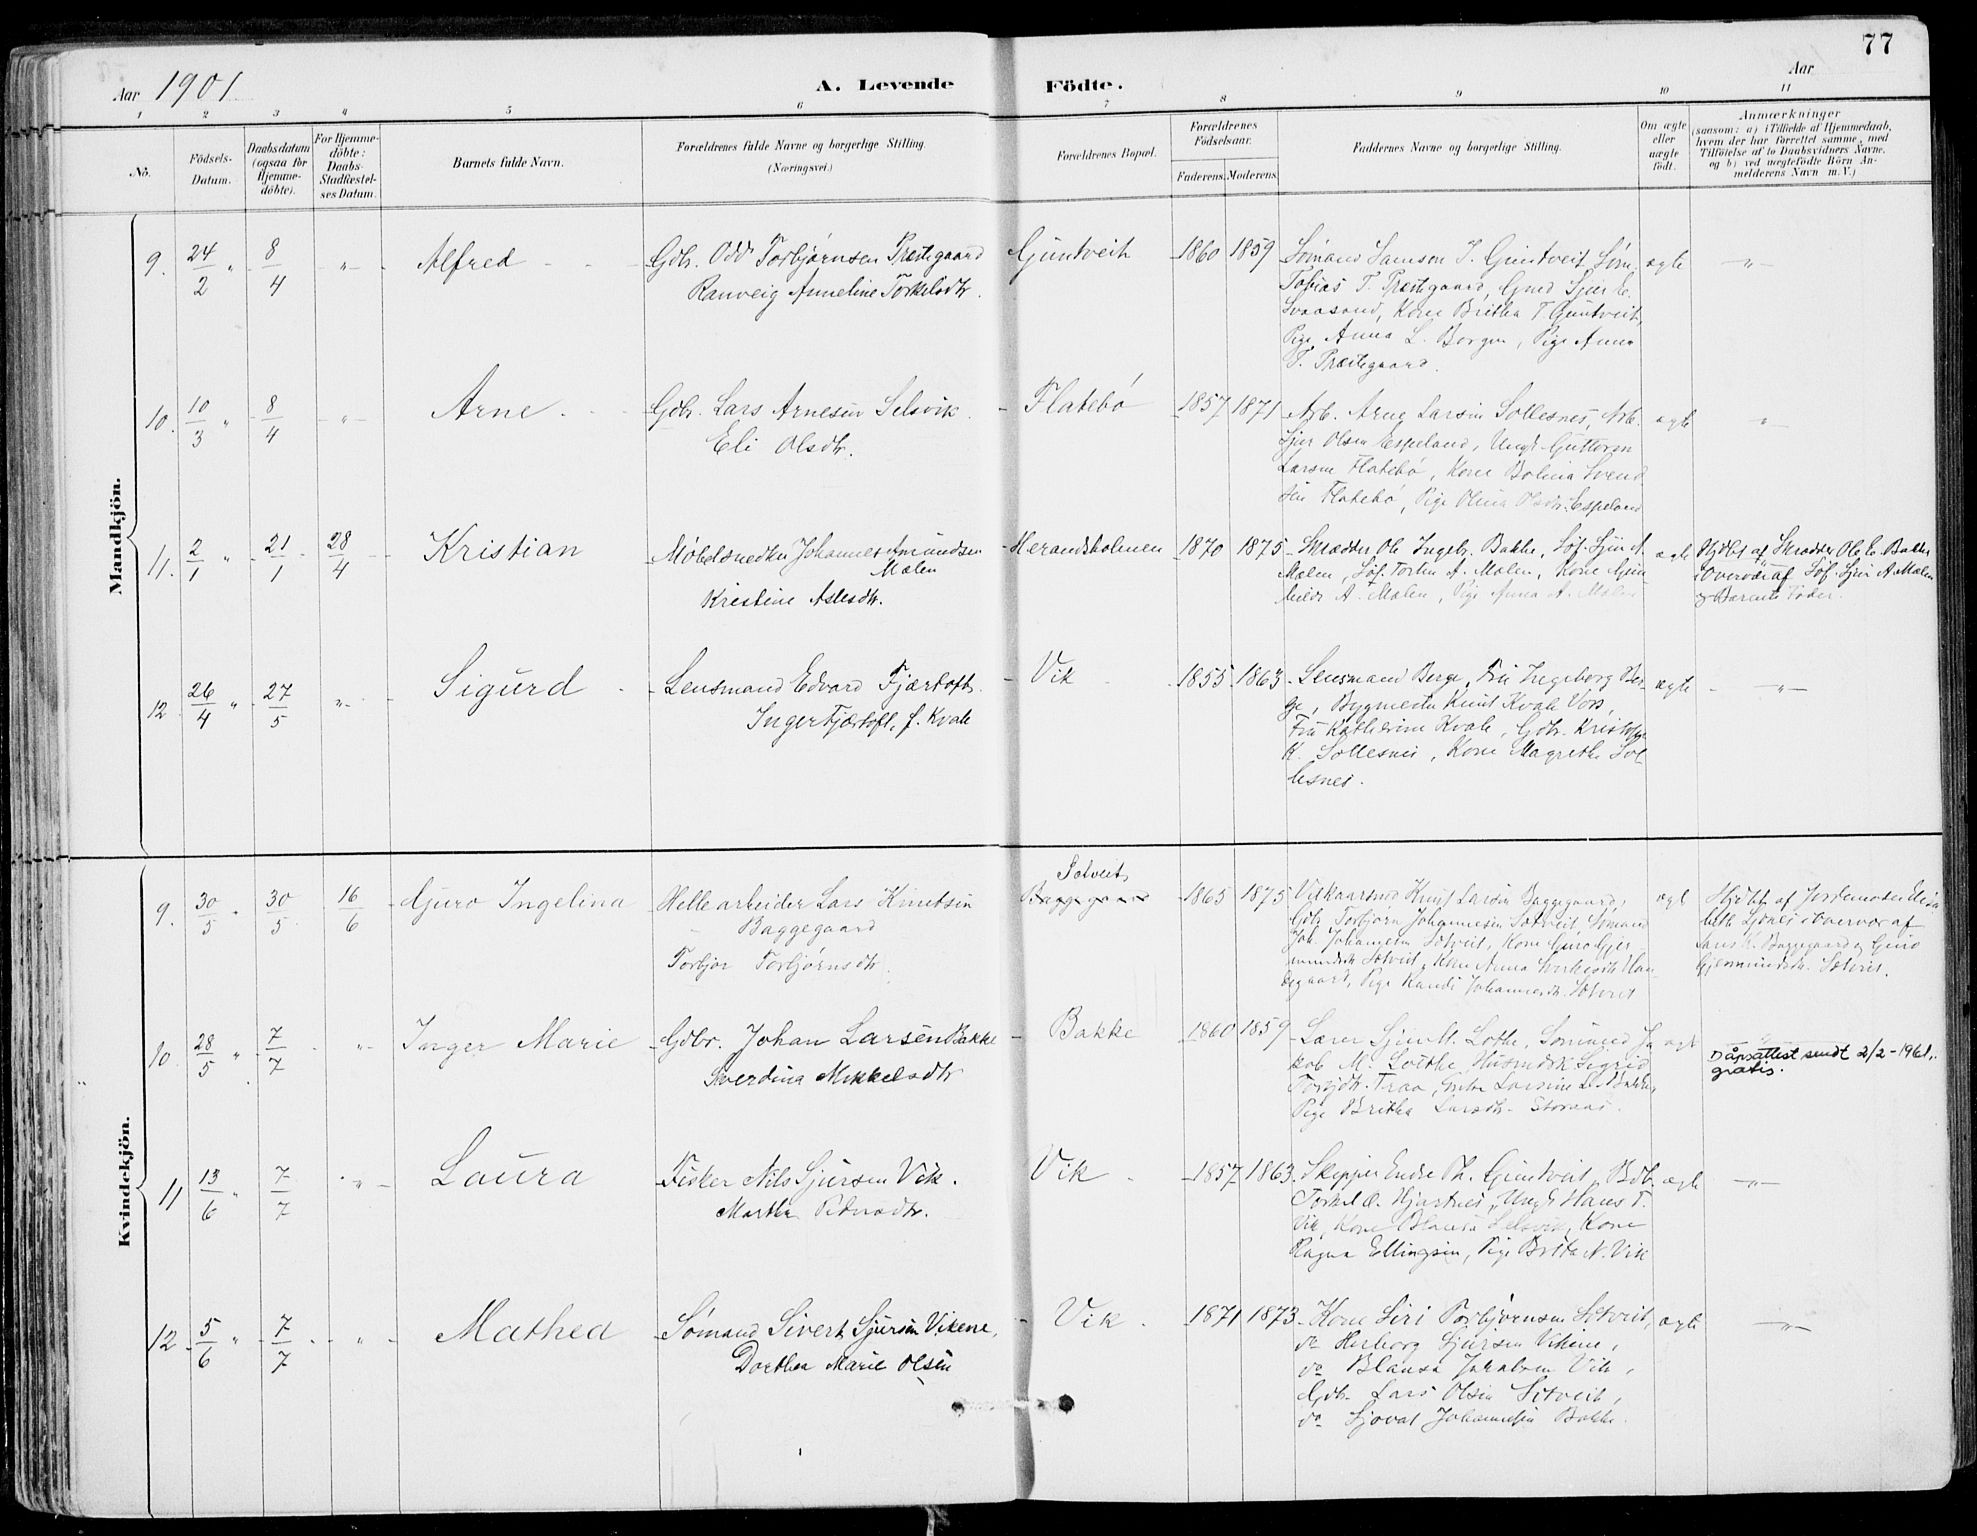 77
Aar 1901
A. Levende Födte.
Aar
1 2 3 " 5 6 7 8 9 10 11
No.
Födsels-Datum.
Daabsdatum (ogsaa for Hjemme-döbte).
For Hjemme-döbte: Daabs-Stadfæstel-ses Datum.
Barnets fulde Navn.
Forældrenes fulde Navne og borgerlige Stilling. (Næringsvei.)
Forældrenes Bopæl.
Forældrenes Födselsaar.
Faderens. Moderens.
Faddernes Navne og borgerlige Stilling.
Om ægte eller uægte födt.
Anmærkninger
(saasom: a) i Tilfælde af Hjemmedaab,
hvem der har forrettet samme, med
Tilföielse af to Daabsvidners Navne,
og b) ved uægtefödte Börn An-
melderens Navn m. V.)
Mandkjön.
9. 24/2 " 8/4 " Alfred
Gdbr. Odd Torbjørnsen Præstegaard
Ranveig Anneline Torkelsdtr.
Guntveit 1860 1859
Sømand Samson T. Guntveit, Søm.
Tobias T. Præstegaard, Gmd Sjur
Svaasand, Kone Britha T Guntveit,
Pige Anna L. Borgen, Pige Anna
T. Præstegaard.
ægte "
10. 10/3 " 8/4 " Arne
Gdbr. Lars Arnesen Selsvik
Eli Olsdtr.
Flatebø 1857 1871
Arb. Arne Larsen Sollesnes, Arb.
Sjur Olsen Espeland, Ungk. Guttorm
Larsen Flatebø, Kone Bolina Svend
sen Flatebø, Pige Olina Olsdtr. Espeland
ægte "
11. 2/1 " 21/1 28/4 Kristian
Møbelsnedker Johannes Amundsen
Mælen
Kristine Aslesdtr.
Herandsholmen 1870 1875
Skrædder Ole Ingebr. Bakke, Søf. Sjur A.
Mælen, Søf. Torten A. Mælen, Kone Gun
hild A. Mælen, Pige Anna A. Mælen
ægte
Hjdbt af Skrædder Ole I. Bakke
i Overvær af Søf. Sjur A. Mælen
& Barnets Fader.
12. 26/4 " 27/5 " Sigurd
Lensmand Edvard Fjærtoft
Inger Fjærtoft, f. Kvale
Vik 1855 1863
Lensmand Berge, Fru Ingeborg Ber-
ge, Bygmester Knut Kvale Vors,
Fru Katherine Kvale, Gdbr. Kristofer
K. Sollesnes, Kone Magrethe Sol
lesnes.
ægte "
Kvindekjön.
9. 30/5 " 30/5 16/6 Guro Ingelina
Hellearbeider Lars Knutsen
Baggegaard
Torbjør Torbjørnsdtr.
Sotveit
Baggegaard 1865 1875
Vilkaarsmd Knut Larsen Baggegaard,
Gdbr Torbjørn Johannesen Sotveit, Sømand
Joh. Johannesen Sotveit, Kone Guro Gjer
mundsdtr Sotveit, Kone Anna
gaard, Pige Randi Johannesdtr. Sotveit
ægt
Hjdbt af Jordemoder Elisa
beth i Overvær af
Lars K. Baggegaard og Guro
Gjermundsdtr. Sotveit.
10. 28/5 " 7/7 " Inger Marie
Gdbr. Johan Larsen Bakke
Sverdina Mikkelsdtr
Bakke 1860 1859
Lærer Sjur M. Lothe, Sømand Ja
kob M. Lothe, Husmdsk Sigrid
Torbjdtr. Traa, Enke Larsine L. Bakke,
Pige Britha Larsdtr. Storaas.
ægt
Dåpsattest sendt 2/2-1961,
gratis.
11 13/6 " 7/7 " Laura
Fisker Nils Sjursen Vik.
Martha Pedersdtr.
Vik 1857 1863
Skipper Endre Th. Guntveit, Gdb.
Torkel O. Hjartnes, Ungk Hans T.
Vik, Kone Blansa Selsvik, Kone
Ragna Ellingsen, Pige Brita N. Vik
ægte "
12 5/6 " 7/7 " Mathea
Sømand Sivert Sjursen Vikene,
Dorthea Marie Olsen
Vik 1871 1873
Kone Siri Torbjørnsen Sotveit,
do Herborg Sjursen Vikene,
do Blansa Jakobsen Vik,
Gdbr. Lars Olsen Sotveit,
do Sjovat Johannesen Bakke.
ægte "